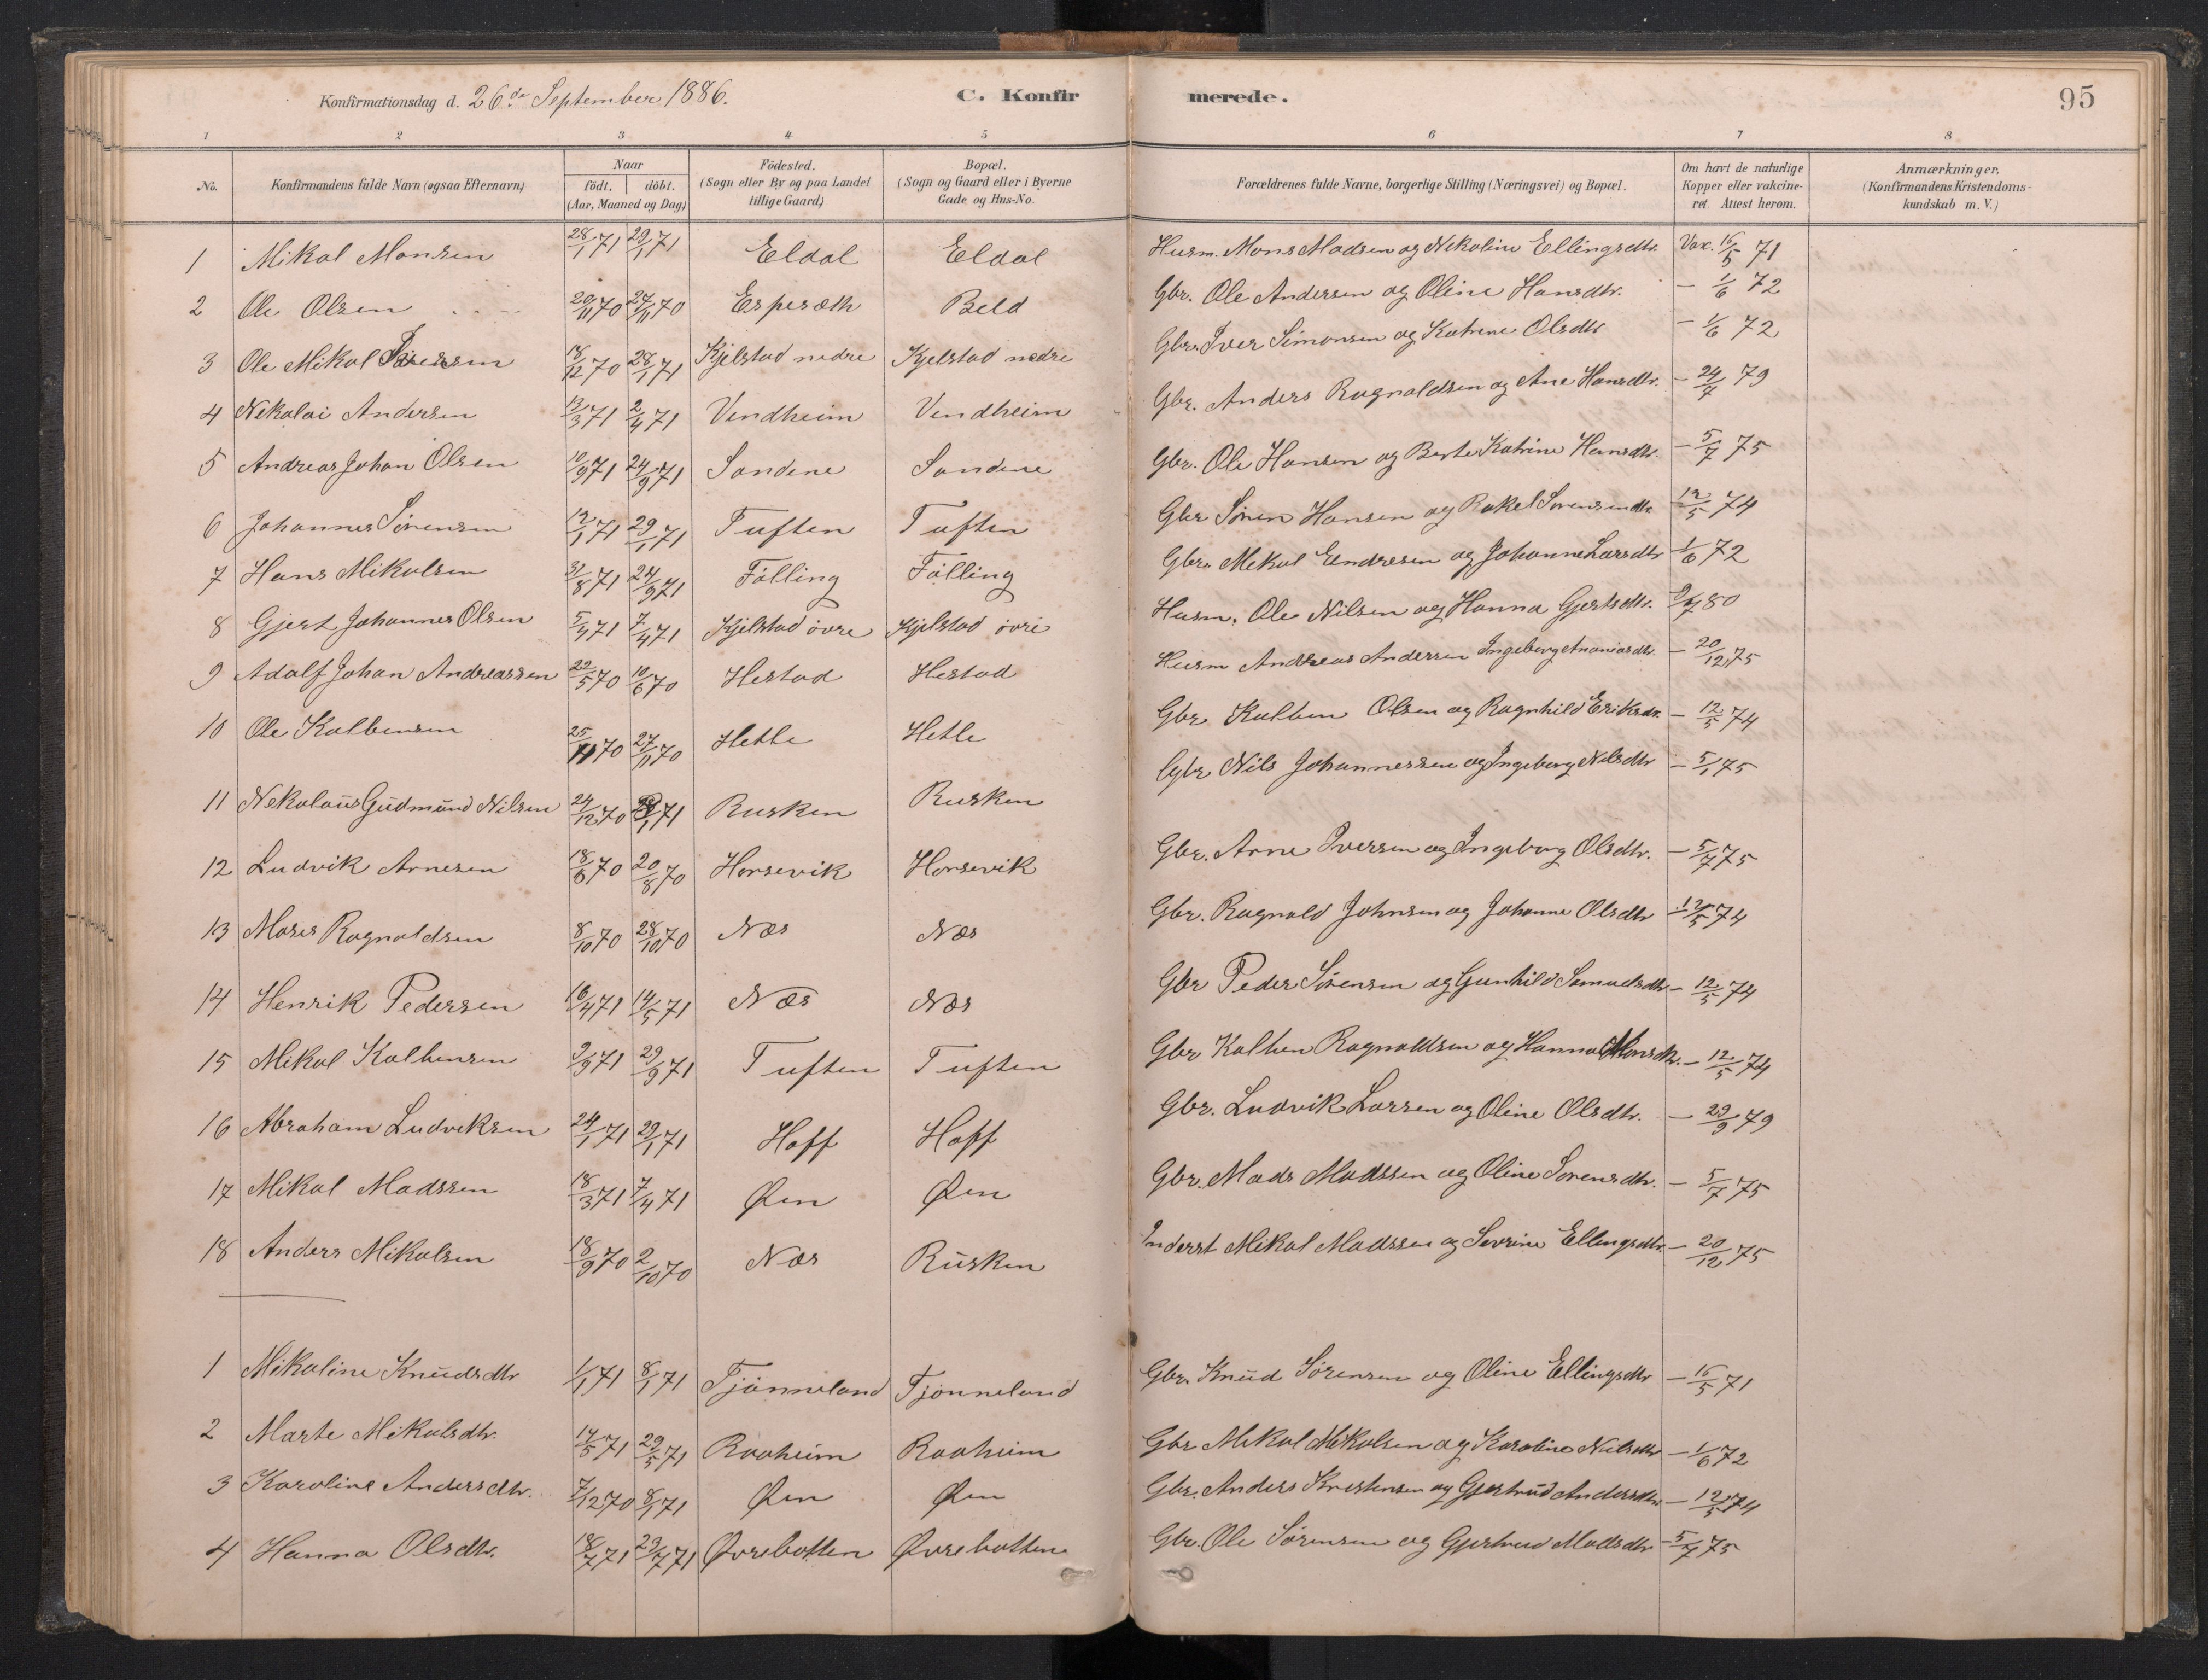 Konfirmationsdag d. 26de September 1886. C. Konfirmerede. 95
1 2 3 4 5 6 7 8
No. Konfirmandens fulde Navn (ogsaa Efternavn) Naar födt. döbt. (Aar, Maaned og Dag.) Födested. (Sogn eller By og paa Landet tillige Gaard) Bopæl. (Sogn og Gaard eller i Byerne Gade og Hus-No. Forældrenes fulde Navne, borgerlige Stilling (Næringsvei) og Bopæl. Om havt de naturlige Kopper eller vakcineret. Attest herom. Anmærkninger. (Konfirmandens Kristendomskundskab m. V.)
1 Mikal Monsen 28/1 71 29/1 71 Eldal Eldal Husm. Mons Madsen og Nekoline Ellingsdtr. Vax. 16/5 71
2 Ole Olsen 20/11 70 24/11 70 Espesæth Beld Gbr. Ole Andersen og Oline Hansdtr. - 1/6 72
3 Ole Mikal Iversen 18/12 70 28/1 71 Kjelstad nedre Kjelstad nedre Gbr. Iver Simonsen og Katrine Olsdtr - 1/6 72
4 Nekolai Andersen 13/3 71 2/4 71 Vindheim Vindheim Gbr. Anders Ragnaldsen og Ane Hansdtr. - 24/7 79
5 Andreas Johan Olsen 10/9 71 24/9 71 Sandene Sandene Gbr. Ole Hansen og Berte Katrine Hansdtr. - 5/7 75
6 Johannes Sørensen 12/1 71 29/1 71 Tuften Tuften Gbr Sören Hansen og Rakel Sorensendtr 12/5 74
7 Hans Mikalsen 31/8 71 24/9 71 Fölling Fölling Gbr. Mekal Endresen og Johanne Larsdtr 1/6 72
8 Gjert Johannes Olsen 5/4 71 7/4 71 Kjelstad övre Kjelstad övre Husm. Ole Nilsen og Hanna Gjertsdtr. 9/7 80
9 Adolf Johan Andreassen 22/5 70 10/6 70 Hestad Hestad Husm Andreas Andersen Ingeborg Ananiasdtr. - 20/12 75
10 Ole Kolbensen 25/11 70 27/11 70 Hetle Hetle Gbr Kolben Olsen og Ragnhild Eriksdr. - 12/5 74
11 Nekolaus Gudmund Nilsen 24/12 70 /1 71 Rusken Rusken Gbr Nils Johannessen og Ingeborg Nilsdtr - 5/1 75
12 Ludvik Arnesen 18/8 70 20/8 70 Horsevik Horsevik Gbr. Arne Iversen og Ingeborg Olsdtr. - 5/7 75
13 Moses Ragnaldsen 8/10 70 28/10 70 Næs Næs Gbr. Ragnald Johnsen og Johanne Olsdtr 12/5 74
14 Henrik Pedersen 16/4 71 14/5 71 Næs Næs Gbr Peder Sörensen og Gunhild Samuelsdtr - 12/5 74
15 Mikal Kolbensen 9/9 71 29/9 71 Tuften Tuften Gbr Kolben Ragnaldsen og Hanna Monsdtr. - 12/5 74
16 Abraham Ludveksen 24/1 71 29/1 71 Hoff Hoff Gbr. Ludvik Larsen og Oline Olsdtr. - 29/9 79
17 Mikal Madssen 18/3 71 7/4 71 Øen Øen Gbr. Mads Madssen og Oline Sorensdtr. - 5/7 75
18 Anders Mikalsen 18/9 70 2/10 70 Næs Rusken Inderst Mikal Madssen og Sevrine Ellingsdtr. - 20/12 75
1 Mikaline Knudsdtr 1/1 71 8/1 71 Tjönneland Tjönneland Gbr. Knud Sörensen og Oline Ellingsdtr - 16/5 71
2 Marte Mekalsdtr. 14/5 71 29/5 71 Raaheim Raaheim Gbr Mekal Mekalsen og Karoline Nilsdtr - 1/6 72
3 Karoline Andersdtr. 7/12 70 8/1 71 Øen Øen Gbr. Anders Kristensen og Gjertrud Andersdtr - 12/5 74
4 Hanna Olsdtr. 18/7 71 23/7 71 Øvrebotten Øvrebotten Gbr. Ole Sörensen og Gjertrud Madsdtr - 5/7 75